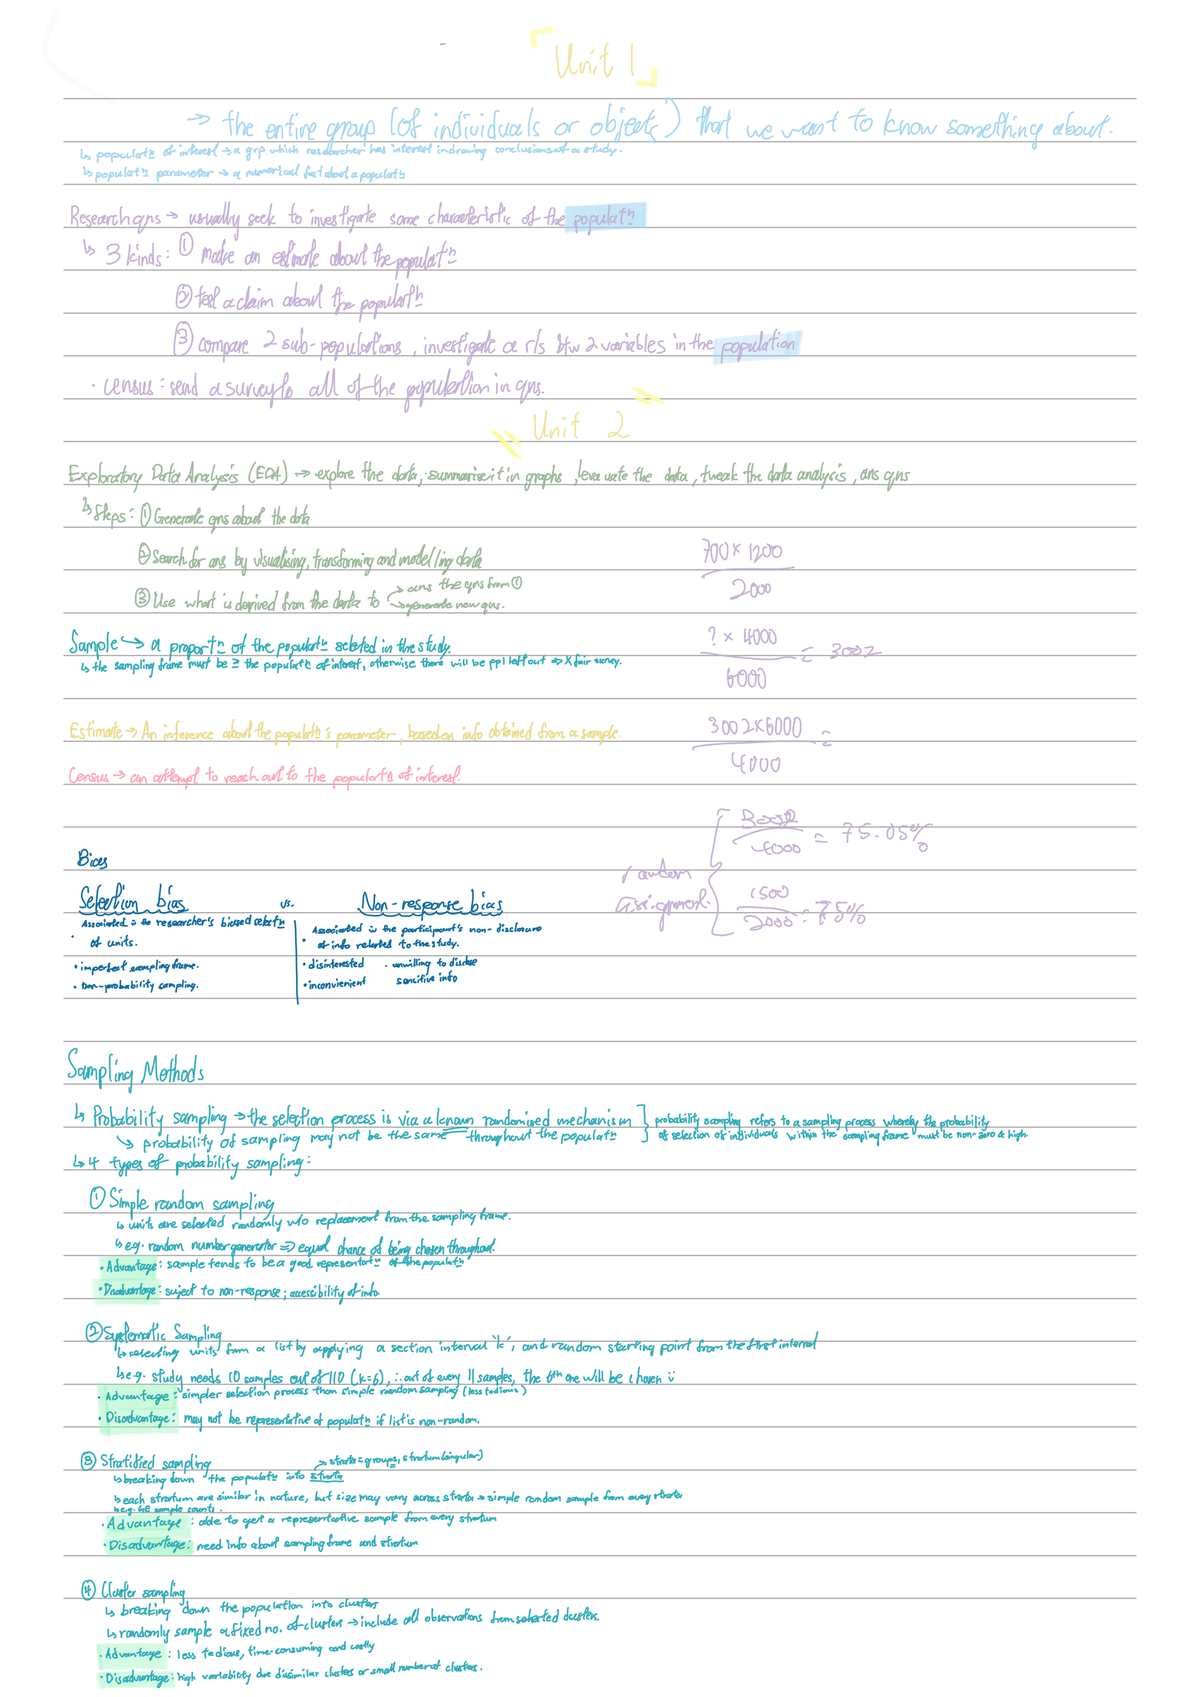 Unit 1
→ the entire group (of individuals or objects) that we want to know something about.
↳ populatⁿ of interest → a grp which researcher has interest in drawing conclusions of a study.
↳ populatⁿ parameter → a numerical fact about a populatⁿ
Research qns → usually seek to investigate some characteristic of the populatⁿ
↳ 3 kinds: ① make an estimate about the populatⁿ
② test a claim about the populatⁿ
③ compare 2 sub-populations, investigate a r/s btw 2 variables in the population
· census: send a survey to all of the population in qns.
Unit 2
Exploratory Data Analysis (EDA) → explore the data, summarise it in graphs, evaluate the data, tweak the data analysis, ans qns
↳ Steps: ① Generate qns about the data
② Search for ans by visualising, transforming and modelling data
③ Use what is derived from the data to → ans the qns from ①
→ generate new qns.
700 × 1200
2000
Sample → a proportⁿ of the populatⁿ selected in the study.
↳ the sampling frame must be ≥ the populatⁿ of interest, otherwise there will be ppl left out => X fair survey.
? × 4000 = 3002
6000
Estimate → An inference about the populatⁿ's parameter, based on info obtained from a sample.
3002 × 6000 =
4000
Census → an attempt to reach out to the populatⁿ of interest.
random assignment
3002
4000 = 75.05%
1500
2000 = 75%
Bias
Selection bias vs. Non-response bias
· Associated c̄ the researcher's biased selectⁿ of units.
· imperfect sampling frame.
· Non-probability sampling.
· Associated c̄ the participant's non-disclosure of info related to the study.
· disinterested · unwilling to disclose sensitive info
· inconvienient
Sampling Methods
↳ Probability sampling → the selection process is via a known randomised mechanism
↳ probability of sampling may not be the same throughout the populatⁿ
probability sampling refers to a sampling process whereby the probability
of selection of individuals within the sampling frame must be non-zero & high.
↳ 4 types of probability sampling:
① Simple random sampling
↳ units are selected randomly w/o replacement from the sampling frame.
↳ e.g. random number generator => equal chance of being chosen throughout.
· Advantage: sample tends to be a good representatⁿ of the populatⁿ
· Disadvantage: suject to non-response; accessibility of info.
② Systematic Sampling
↳ selecting units from a list by applying a section interval 'k', and random starting point from the first interval
↳ e.g. study needs 10 samples out of 110 (k=6), ∴ out of every 11 samples, the 6th one will be chosen ü
· Advantage: simpler selection process than simple random sampling (less tedious)
· Disadvantage: may not be representative of populatⁿ if list is non-random.
③ Stratified sampling
→ strata = groups, stratum (singular)
↳ breaking down the populatⁿ into strata
↳ each stratum are similar in nature, but size may vary across strata → simple random sample from every strata
↳ e.g. GE sample counts.
· Advantage: able to get a representative sample from every stratum
· Disadvantage: need info about sampling frame and stratum
④ Cluster sampling
↳ breaking down the population into clusters
↳ randomly sample a fixed no. of clusters → include all observations from selected clusters.
· Advantage: less tedious, time-consuming and costly
· Disadvantage: high variability due dissimilar clusters or small number of clusters.